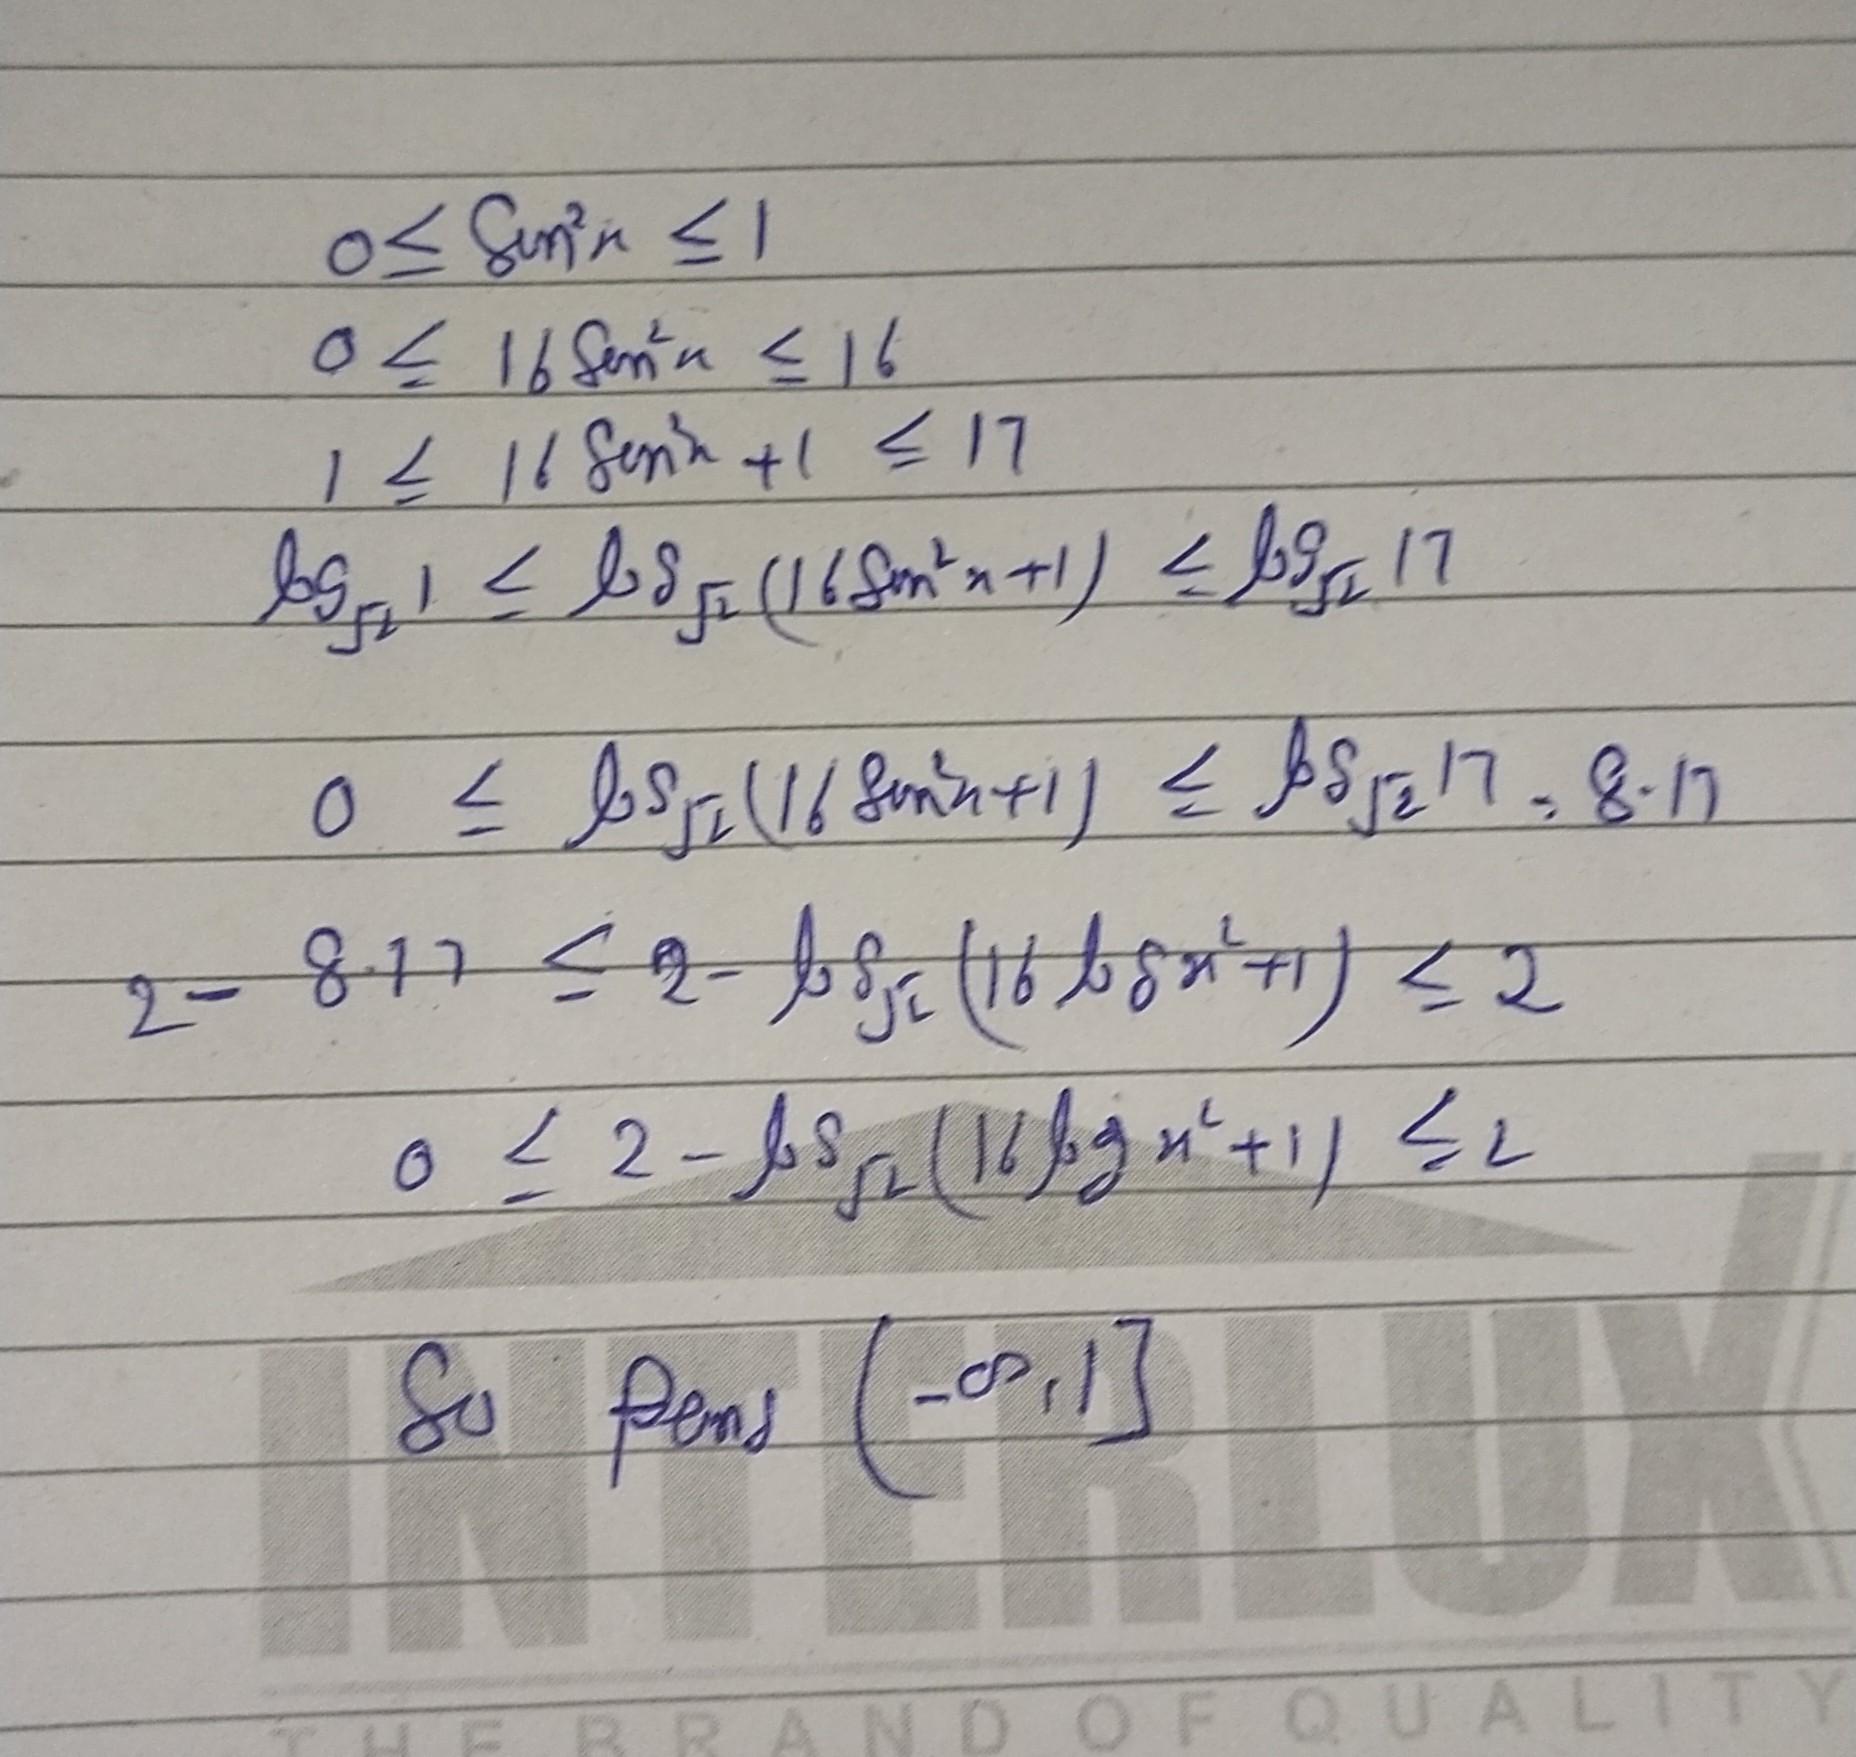 0 ≤ Sin²x ≤ 1
0 ≤ 16 Sin²x ≤ 16
1 ≤ 16 Sin²x + 1 ≤ 17
log√2 1 ≤ log√2 (16 Sin²x + 1) ≤ log√2 17
0 ≤ log√2 (16 Sin²x + 1) ≤ log√2 17 = 8.17
2 - 8.17 ≤ 2 - log√2 (16 log x² + 1) ≤ 2
0 ≤ 2 - log√2 (16 log x² + 1) ≤ 2
So (-∞, 1]
INTERLUX
THE BRAND OF QUALITY